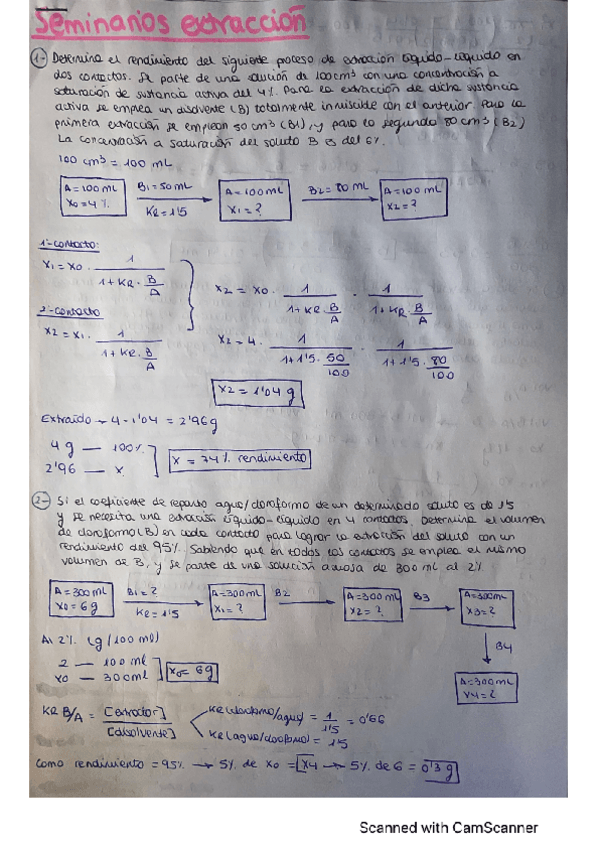 Seminarios extracción
1- Determina el rendimiento del siguiente proceso de extracción líquido-líquido en
dos contactos. Se parte de una solución de 100 cm³ con una concentración a
saturación de sustancia activa del 4%. Para la extracción de dicha sustancia
activa se emplea un disolvente (B) totalmente inmiscible con el anterior. Para la
primera extracción se emplean 50 cm³ (B1), y para la segunda 80 cm³ (B2)
La concentración a saturación del soluto B es del 6%.
100 cm³ = 100 mL
A = 100 mL
X0 = 4%
B1 = 50 mL
KR = 1'5
A = 100 mL
X1 = ?
B2 = 80 mL
A = 100 mL
X2 = ?
1º-contacto:
X1 = X0 · 1 / (1 + KR · B/A)
2º-contacto
X2 = X1 · 1 / (1 + KR · B/A)
X2 = X0 · 1 / (1 + KR · B/A) · 1 / (1 + KR · B/A)
X2 = 4 · 1 / (1 + 1'5 · 50/100) · 1 / (1 + 1'5 · 80/100)
X2 = 1'04 g
Extraído → 4 - 1'04 = 2'96 g
4 g — 100%
2'96 — X
X = 74% rendimiento
2- Si el coeficiente de reparto agua/cloroformo de un determinado soluto es de 1'5
y se necesita una extracción líquido-líquido en 4 contactos. Determina el volumen
de cloroformo (B) en cada contacto para lograr la extracción del soluto con un
rendimiento del 95%. Sabiendo que en todos los contactos se emplea el mismo
volumen de B, y se parte de una solución acuosa de 300 mL al 2%
A = 300 mL
X0 = 6 g
B1 = ?
KR = 1'5
A = 300 mL
X1 = ?
B2
A = 300 mL
X2 = ?
B3
A = 300 mL
X3 = ?
B4
A = 300 mL
X4 = ?
Al 2% (g/100 ml)
2 — 100 ml
X0 — 300 ml
X0 = 6 g
KR B/A = [extractor] / [disolvente]
KR (cloroformo/agua) = 1/1'5 = 0'66
KR (agua/cloroformo) = 1'5
Como rendimiento = 95% → 5% de X0 = X4 → 5% de 6 = 0'3 g
Scanned with CamScanner